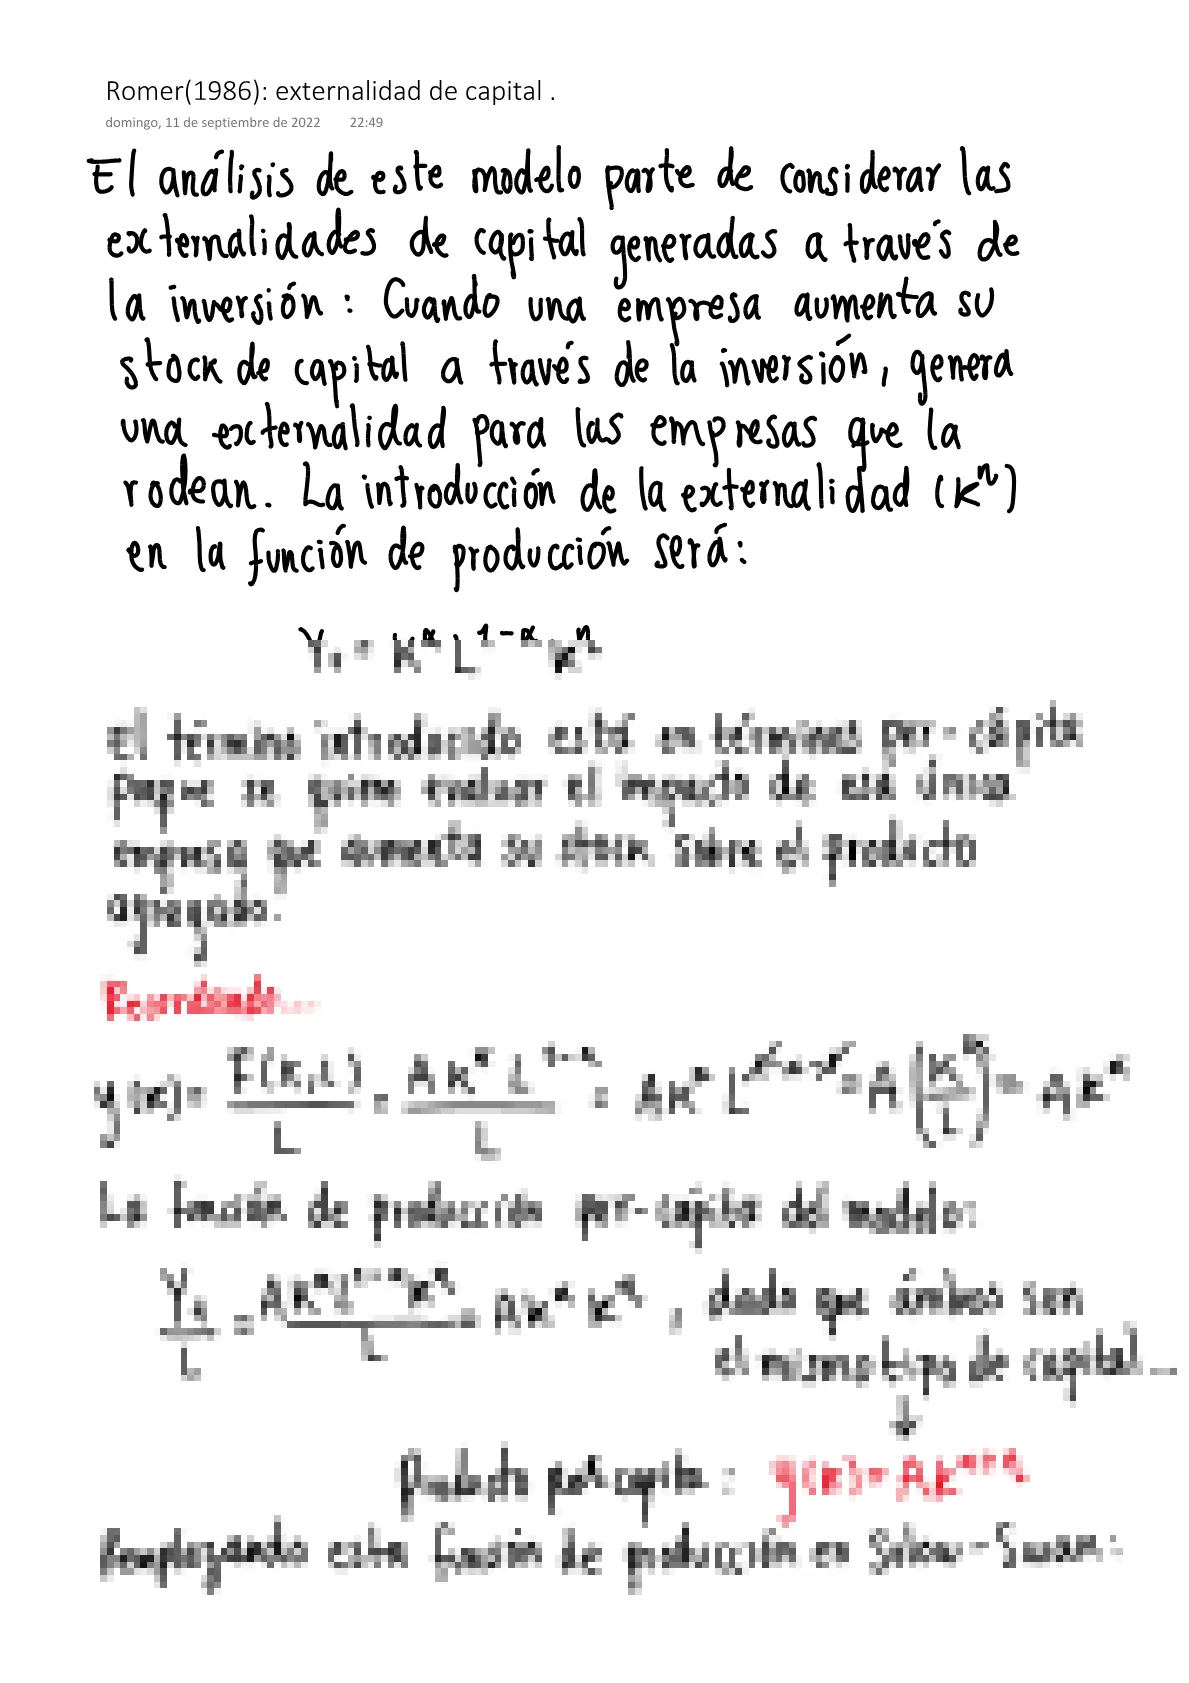 Romer(1986): externalidad de capital .
domingo, 11 de septiembre de 2022 22:49
El análisis de este modelo parte de considerar las
externalidades de capital generadas a través de
la inversión : Cuando una empresa aumenta su
stock de capital a través de la inversión, genera
una externalidad para las empresas que la
rodean. La introducción de la externalidad (k^n)
en la función de producción será:
= K^α L^1-α k^n
El término introducido está en términos per-cápita
porque se quiere evaluar el impacto de esa única
empresa que aumenta su stock sobre el producto
agregado.
Recordando...
y(k)= F(K,L)/L = AK^α L^1-α/L = AK^α L = A(K/L)^α = Ak^α
La función de producción per-cápita del modelo:
/L = AK^α L^1-α k^n/L = Ak^α k^n , dado que ambos son
el mismo tipo de capital...
↓
Producto per capita : y(k)=Ak^α+n
Remplazando esta función de producción en Solow-Swan: